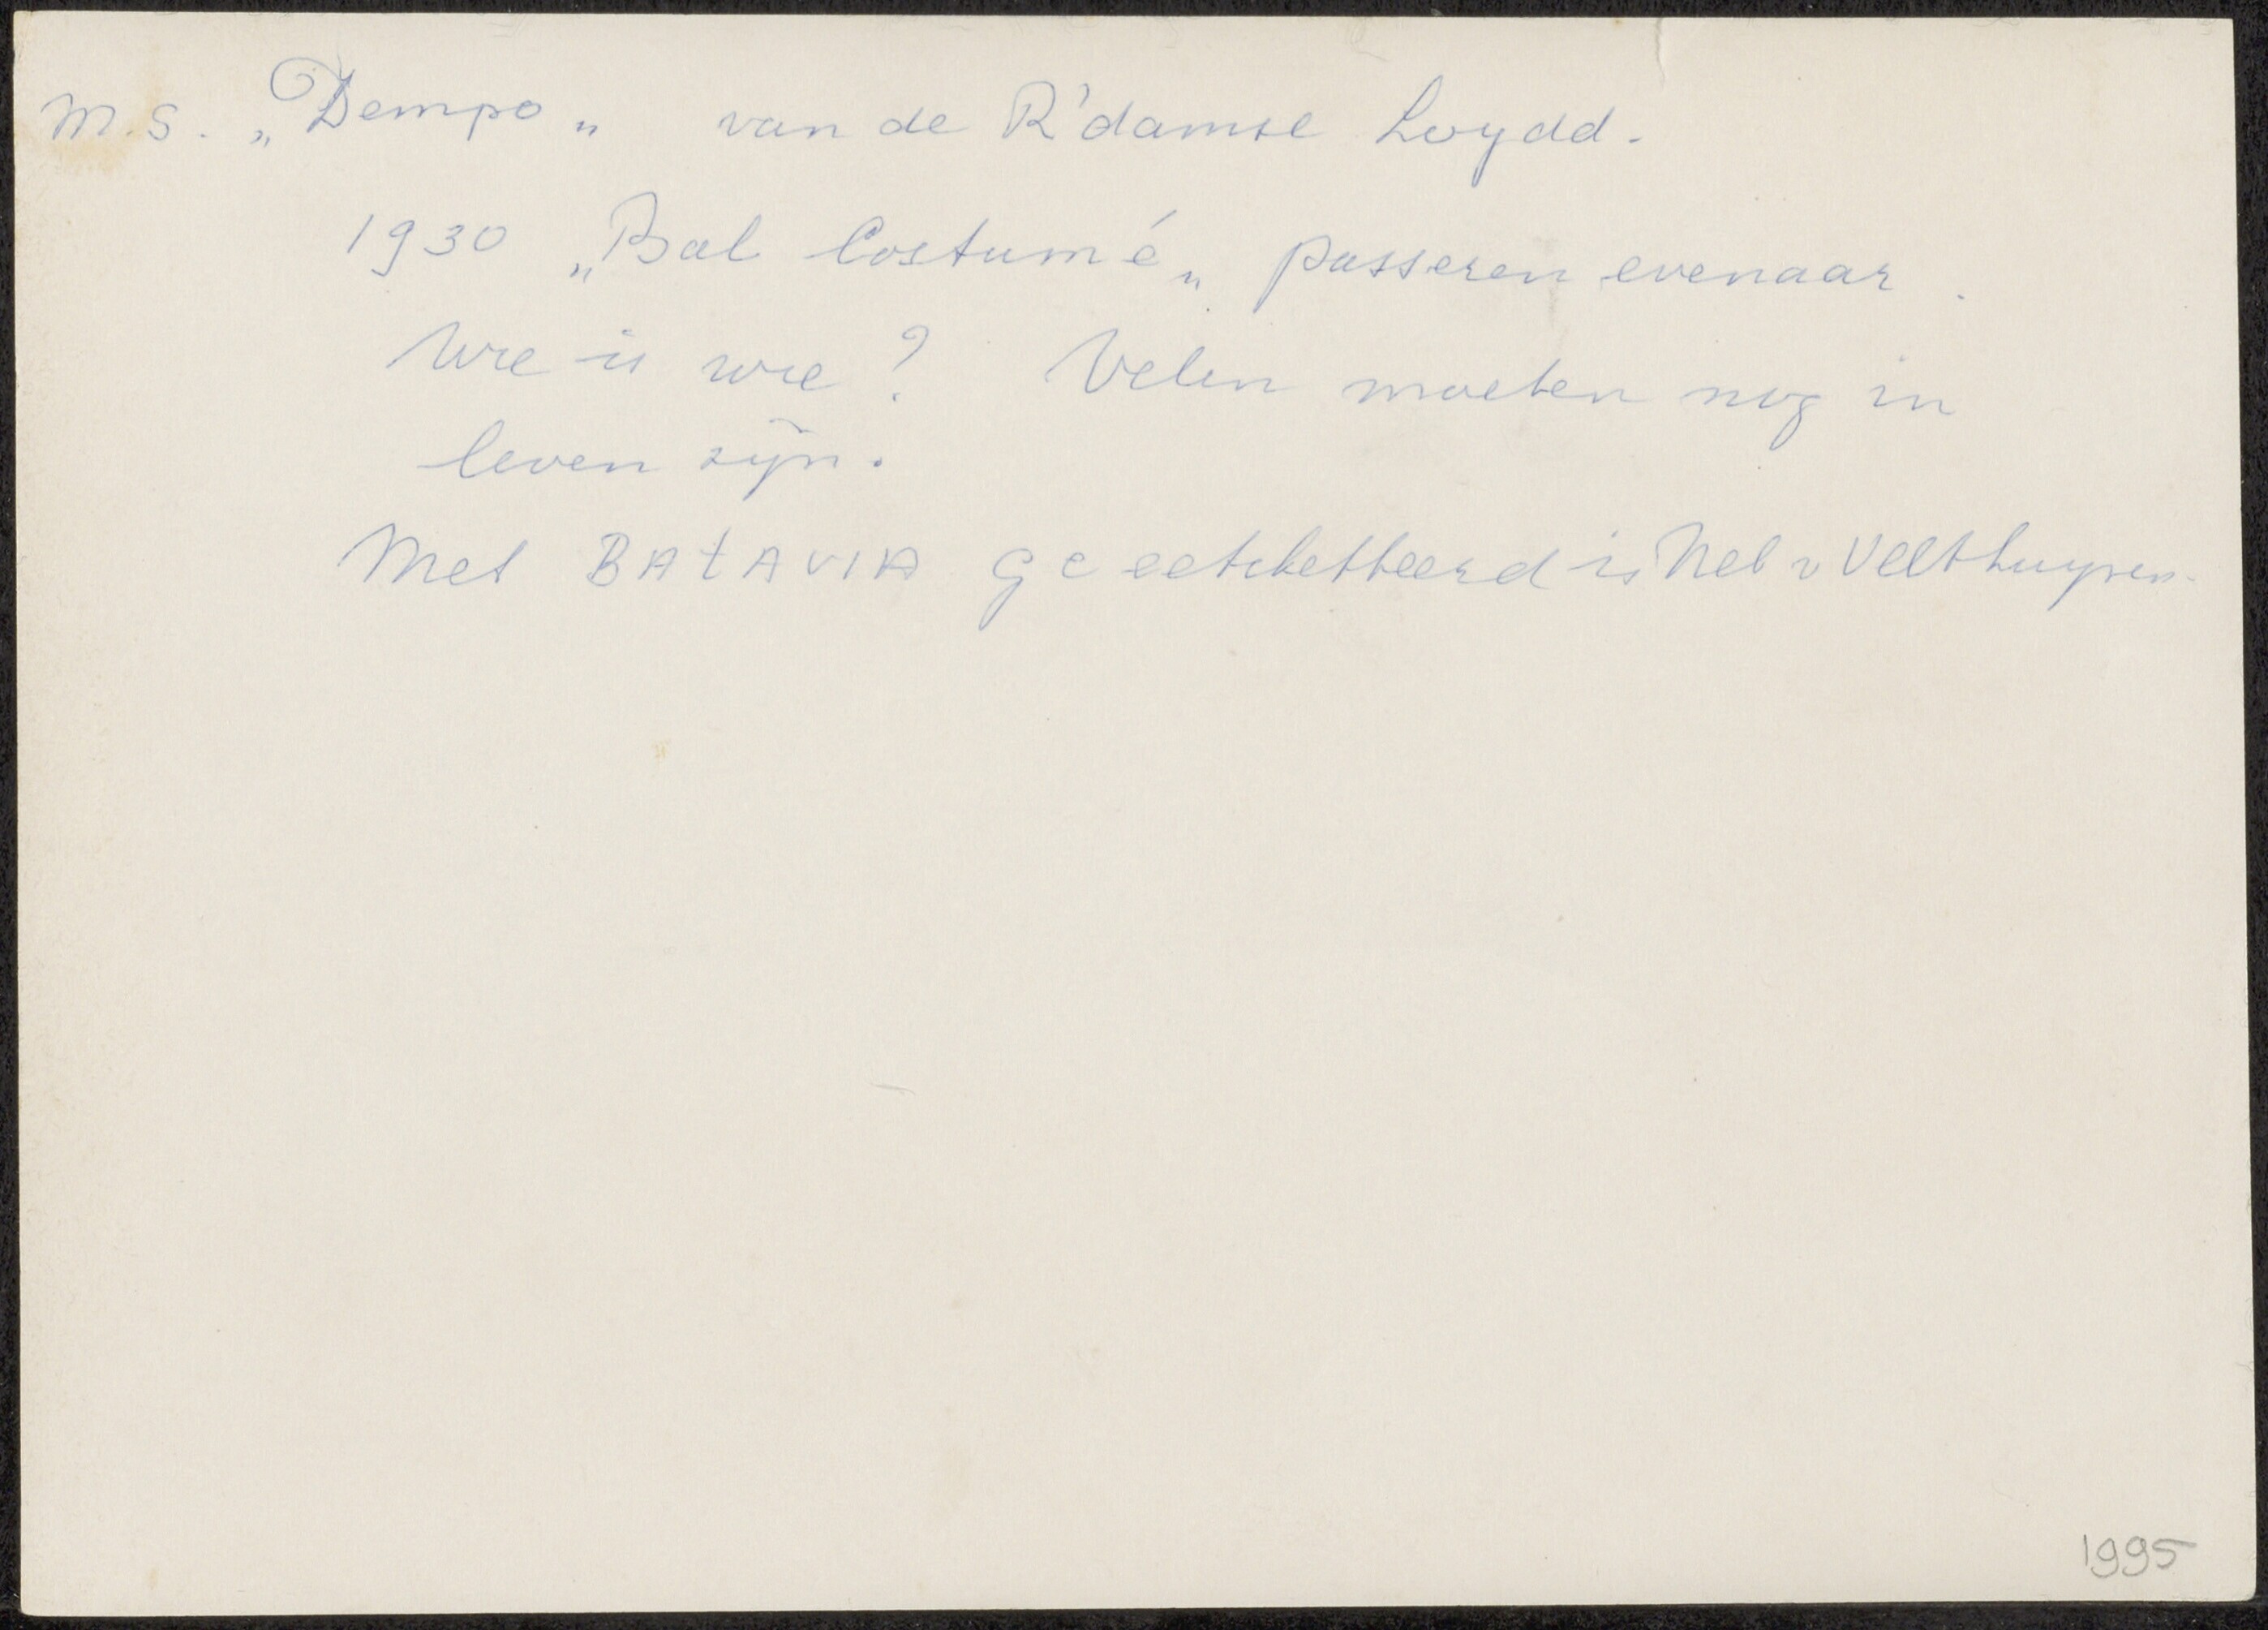 M.S. „Dempo„ van de R'damse Loydd.
1930 „Bal Costumé„ passeren evenaar.
Wie is wie? Velen moeten nog in
leven zijn.
Met BATAVIA is Nel v Velthuysen.
1995